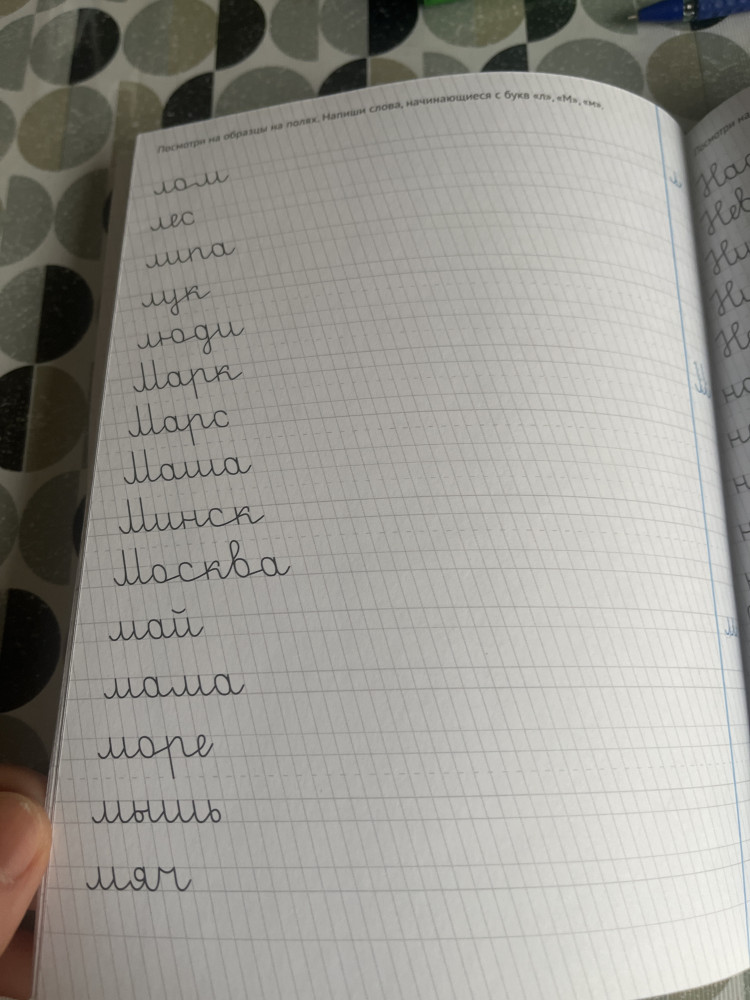 Посмотри на образцы на полях. Напиши слова, начинающиеся с букв «л», «М», «м».
лом
лес
липа
лук
люди
Марк
Марс
Маша
Минск
Москва
май
мама
море
мышь
мяч
л
М
м
Посмотри на